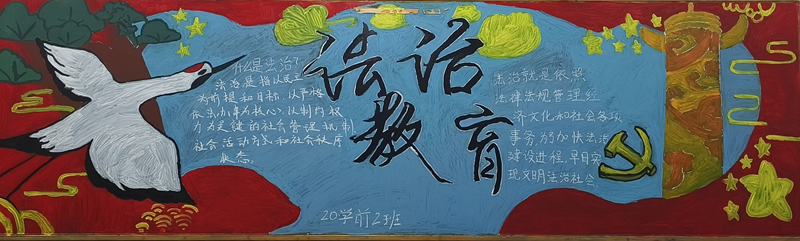 法治
教育
什么是法治?
法治是指以民主
为前提和目标,以严格
依法办事为核心,以制约权
力为关键的社会管理机制
社会活动方式和社会秩序
状态。
法治就是依照
法律法规管理经
济文化和社会各项
事务,为了加快法治
建设进程,早日实
现文明法治社会。
20学前2班